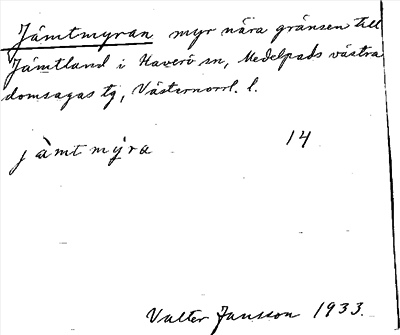 Jämtmyran myr nära gränsen till
Jämtland i Haverö sn, Medelpads västra
domsagas tg, Västernorrl. l.
jàmtmy̆ra 14
Valter Jansson 1933.